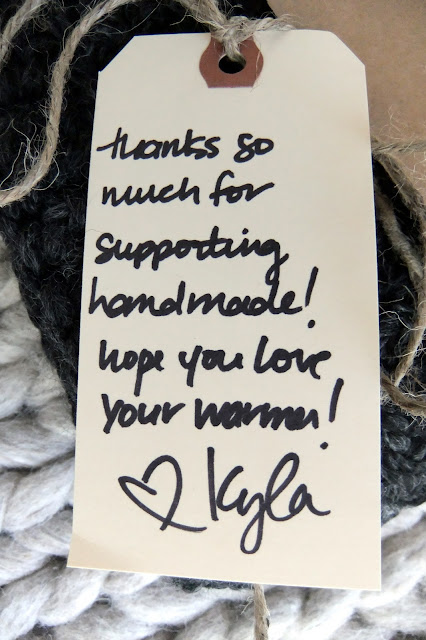 thanks so
much for
supporting
handmade!
hope you love
your warmer!
♡ Kyla